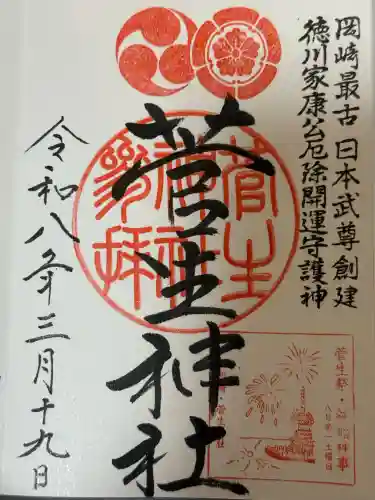 岡崎最古 日本武尊創建
徳川家康公厄除開運守護神
菅生神社
菅生神社参拝
令和八年三月十九日
菅生祭・
八月第一土曜日